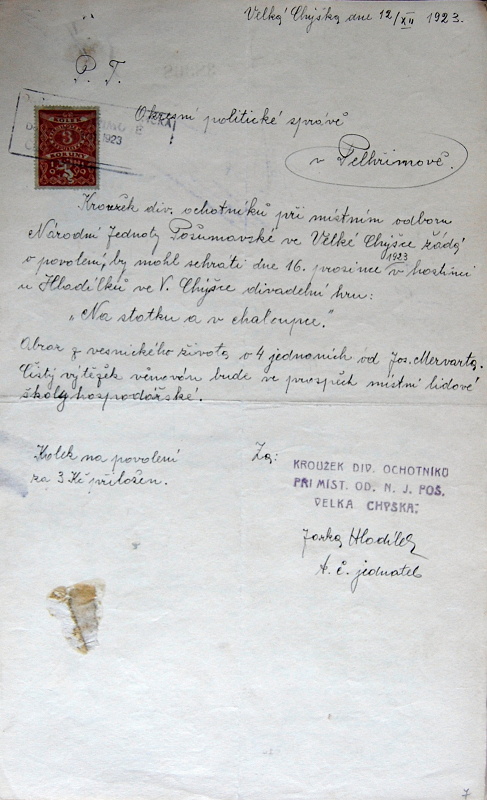 Velká Chýška dne 12/XII 1923.
P. T.
KOLEK
3
KORUNY
1923
Okresní politické správě
v Pelhřimově.
Kroužek div. ochotníků při místním odboru
Národní Jednoty Pošumavské ve Velké Chýšce žádá
o povolení, by mohl sehráti dne 16. prosince 1923 v hostinci
u Hladílků ve V. Chýšce divadelní hru:
„Na statku a v chaloupce."
Obraz z vesnického života o 4 jednáních od Jos. Mervarta.
Čistý výtěžek věnován bude ve prospěch místní lidové
školy hospodářské.
Kolek na povolení
za 3 Kč přiložen.
Za:
KROUŽEK DIV. OCHOTNÍKŮ
PŘI MÍST. OD. N. J. POŠ.
VELKA CHÝŠKA.
Hladílek
t. č. jednatel
7